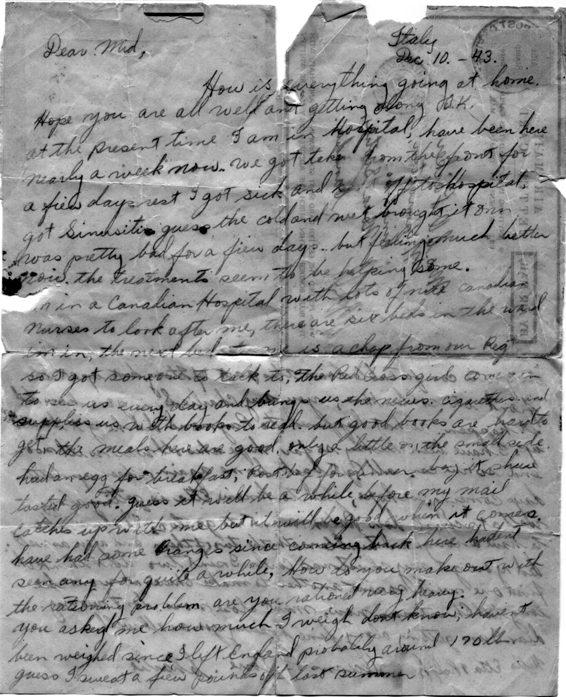 Italy
Dec. 10. - 43.
Dear Mid,
How is everything going at home.
Hope you are all well and getting along O.K.
at the present time I am in Hospital, have been here
nearly a week now. we got taken from the front for
a few days rest I got sick and off to hospital,
got Sinusitis guess the cold and wet brought it on
was pretty bad for a few days. but feeling much better
now. the treatments seem to be helping some.
in a Canadian Hospital with lots of nice Canadian
nurses to look after me, there are six beds in the ward
im in, the next bed to me is a chap from our Reg
so I got someone to talk to, the Red Cross girl comes in
to see us every day and brings us the news. cigarettes and
supplies us with books to read. but good books are hard to
get. the meals here are good, only a little on the small side
had an egg for breakfast, Roast beef for dinner, it shure
tasted good. guess it will be a while before my mail
catches up with me but it will be good when it comes
have had some oranges since coming back here hadent
seen any for quite a while, how do you make out with
the rationing problem are you rationed very heavy.
you asked me how much I weigh dont know, havent
been weighed since I left England probably around 170 lbs
guess I sweat a few pounds off last summer